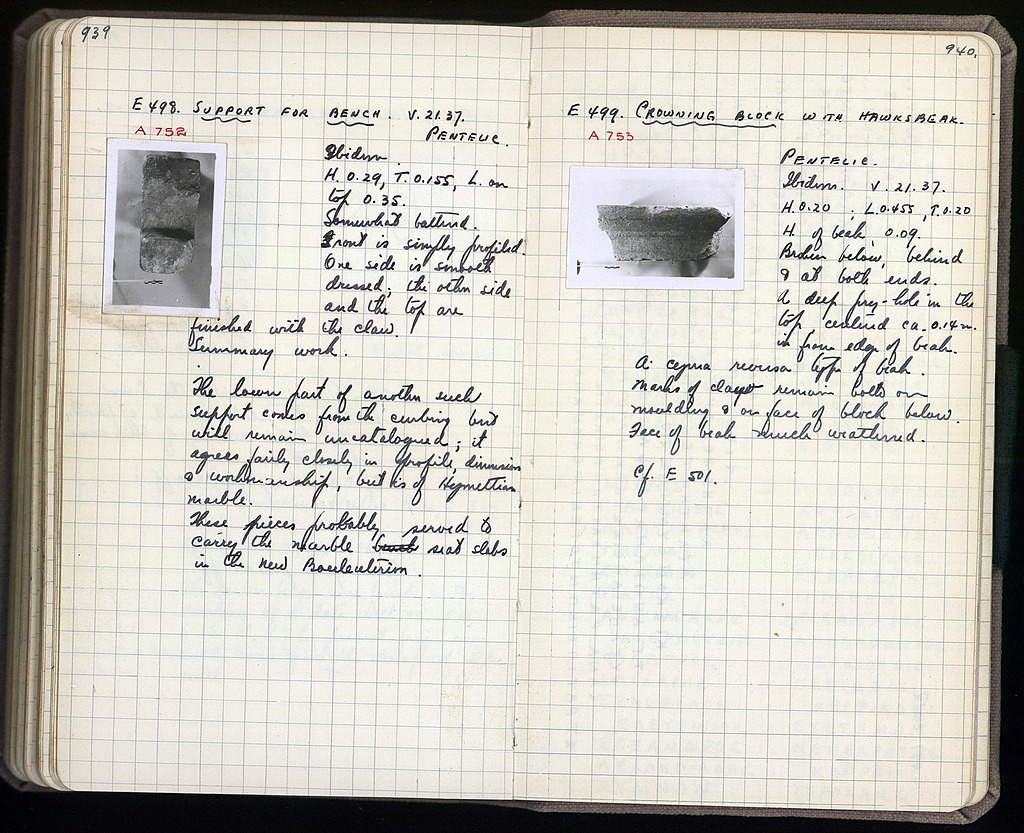 939
E 498. SUPPORT FOR BENCH. V. 21.37.
A 752
PENTELIC.
Ibidem.
H. 0.29, T. 0.155, L. on
top 0.35.
Somewhat battered.
Front is simply profiled.
One side is smooth
dressed; the other side
and the top are
finished with the claw.
Summary work.
The lower part of another such
support comes from the curbing but
will remain uncatalogued; it
agrees fairly closely in profile, dimensions
& workmanship, but is of Hymettian
marble.
These pieces probably served to
carry the marble bench seat slabs
in the new Bouleuterion.
940.
E 499. CROWNING BLOCK WITH HAWKSBEAK.
A 753
PENTELIC.
Ibidem. V. 21.37.
H. 0.20. L. 0.455, T. 0.20
H. of beak 0.09.
Broken below, behind
& at both ends.
A deep pry-hole in the
top, centered ca. 0.14 m.
in from edge of beak.
A cyma reversa type of beak.
Marks of claw remain both on
moulding & on face of block below.
Face of beak much weathered.
Cf. E 501.